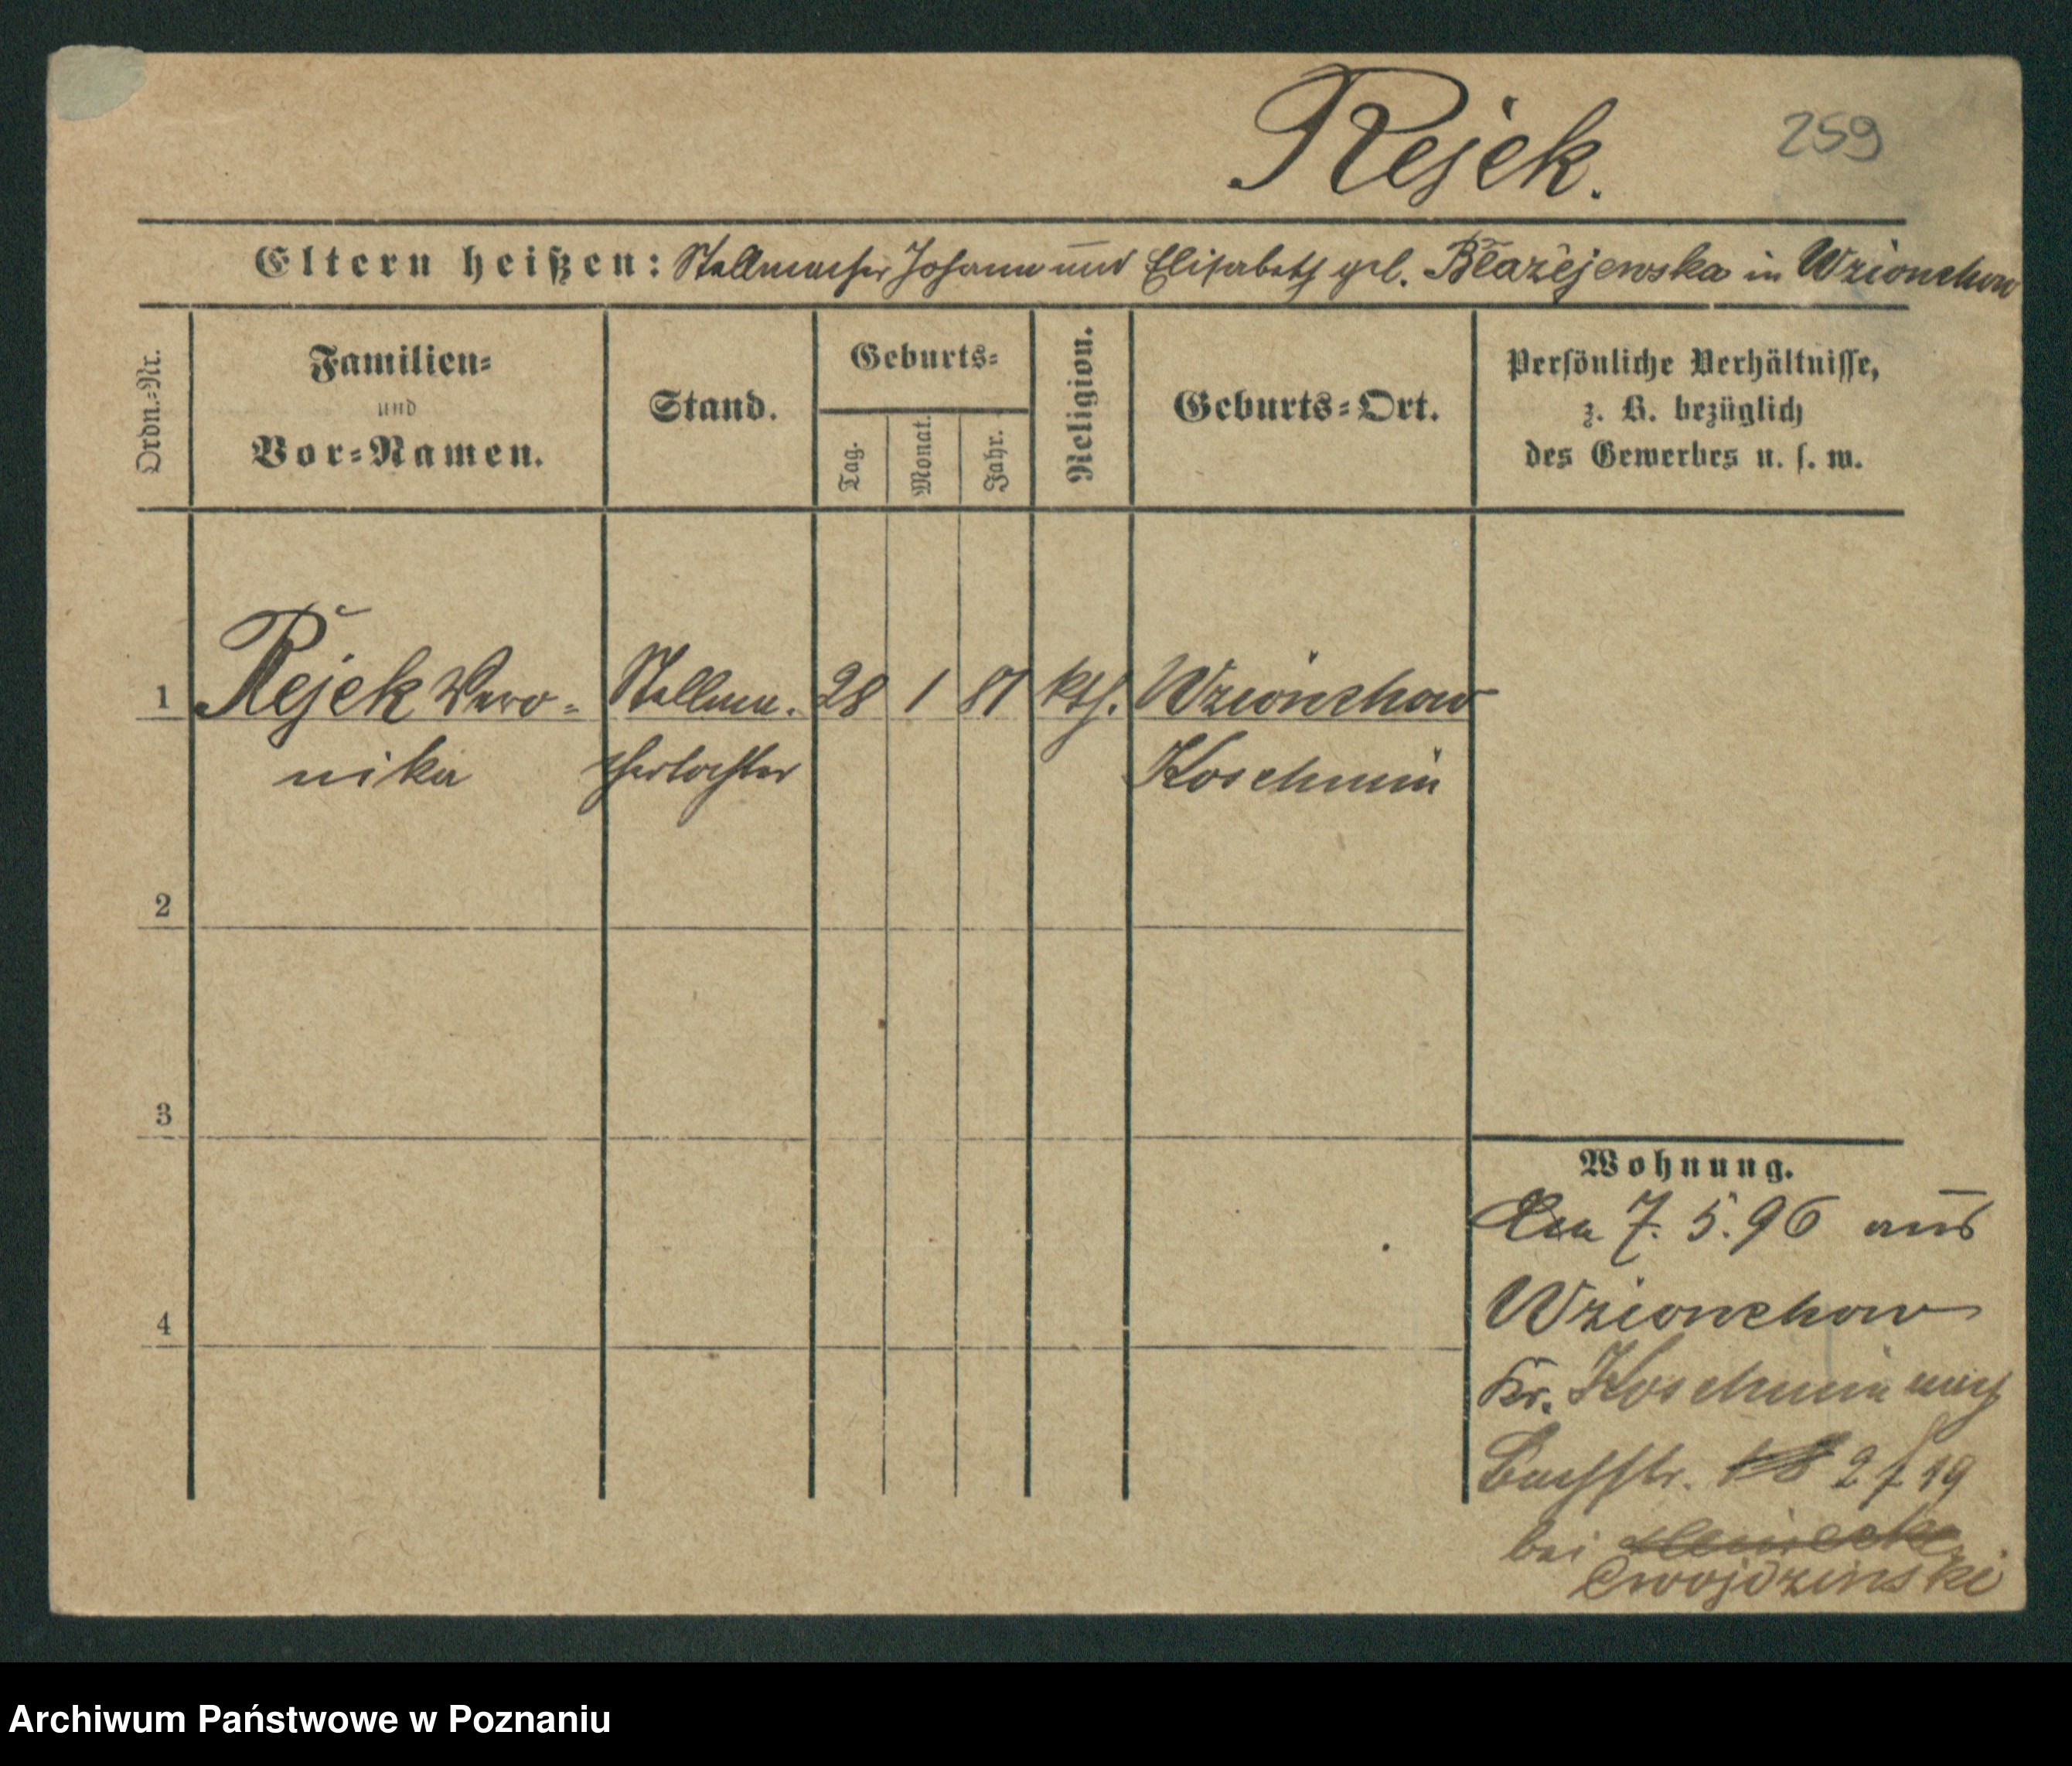 Rejek.
259
Eltern heißen: Stellmacher Johann und Elisabeth geb. Błażejewska in Wzionchow
Ordn.-Nr.
Familien-
und
Vor-Namen.
Stand.
Geburts-
Tag.
Monat.
Jahr.
Religion.
Geburts-Ort.
Persönliche Verhältnisse,
z. B. bezüglich
des Gewerbes u. s. w.
1 Rejek Vero- Stellma. 28 1 81 kth. Wzionchow
nika chertochter Koschmin
2
3
4
Wohnung.
Am 7. 5. 96 aus
Wzionchow
Kr. Koschmin nach
Bachstr. 18 2 f. 19
bei
Cwojdzinski
Archiwum Państwowe w Poznaniu